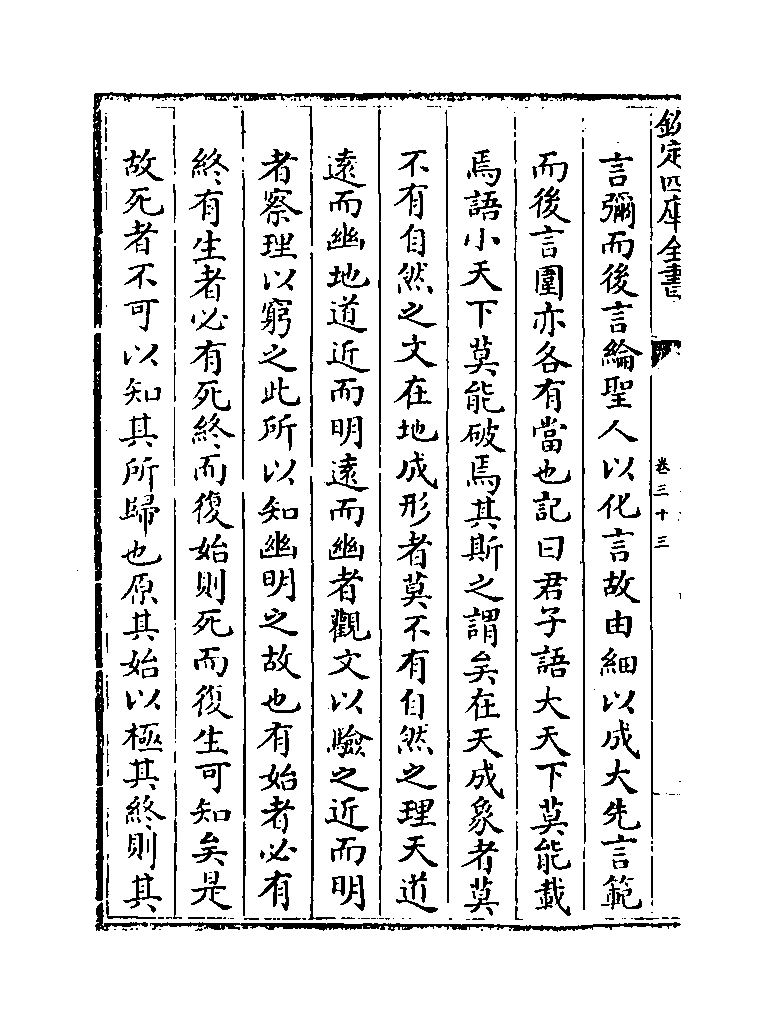 欽定四庫全書
卷三十三
言彌而後言綸聖人以化言故由細以成大先言範
而後言圍亦各有當也記曰君子語大天下莫能載
焉語小天下莫能破焉其斯之謂矣在天成象者莫
不有自然之文在地成形者莫不有自然之理天道
遠而幽地道近而明遠而幽者觀文以驗之近而明
者察理以窮之此所以知幽明之故也有始者必有
終有生者必有死終而復始則死而復生可知矣是
故死者不可以知其所歸也原其始以極其終則其